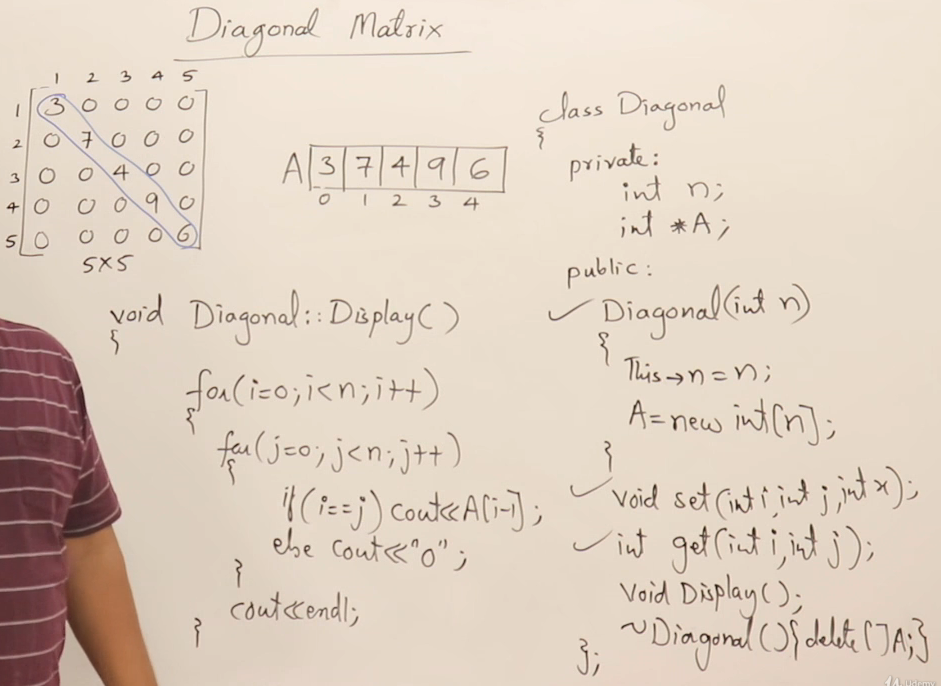 Diagonal Matrix
1 2 3 4 5
1 3 0 0 0 0
2 0 7 0 0 0
3 0 0 4 0 0
4 0 0 0 9 0
5 0 0 0 0 6
5×5
A 3 7 4 9 6
0 1 2 3 4
void Diagonal::Display()
{
for(i=0;i<n;i++)
{
for(j=0;j<n;j++)
{
if(i==j) cout<<A[i-1];
else cout<<"0";
}
cout<<endl;
}
class Diagonal
{
private:
int n;
int *A;
public:
✓ Diagonal(int n)
{
This→n=n;
A=new int[n];
}
✓ void set(int i,int j,int x);
✓ int get(int i,int j);
void Display();
~Diagonal(){delete []A;}
};
Udemy